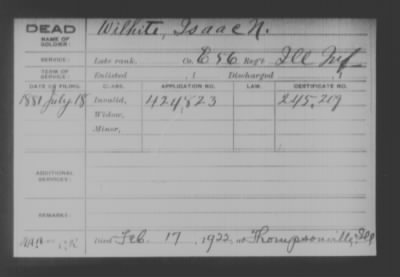 DEAD
NAME OF SOLDIER:
Wilhite, Isaac N.
SERVICE: Late rank, Co. E 56 Reg't Ill Inf
TERM OF SERVICE: Enlisted , 1 Discharged , 1
DATE OF FILING. CLASS. APPLICATION NO. LAW. CERTIFICATE NO.
1881 July 18 Invalid, 424,823 245,219
Widow,
Minor,
ADDITIONAL SERVICES:
REMARKS:
Died Feb. 17, 1922, at Thompsonville, Ill